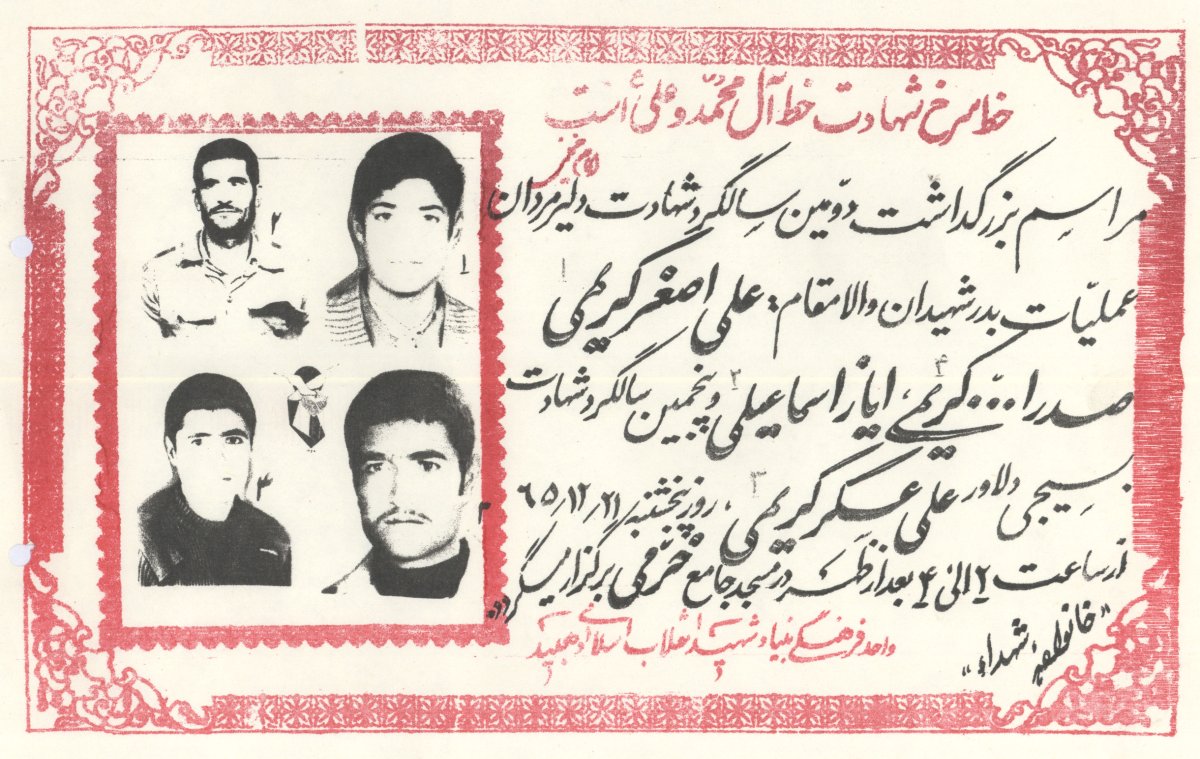 خط سرخ شهادت خط آل محمّد و علی است
امام خمینی
مراسم بزرگداشت دوّمین سالگرد شهادت دلیرمردان
عملیّات بدر شهیدان والامقام: علی اصغر کریمی ۱
صدرا... کریمی ۴ ایاز اسماعیلی ۲ و پنجمین سالگرد شهادت
بسیجی دلاور علی عسکر کریمی ۳ روز پنجشنبه ۶۵/۱۲/
از ساعت ۲ الی ۴ بعد از ظهر در مسجد جامع خرّمی برگزار میگردد.
"خانواده شهداء"
واحد فرهنگی بنیاد شهید انقلاب اسلامی
۲
۱
۳